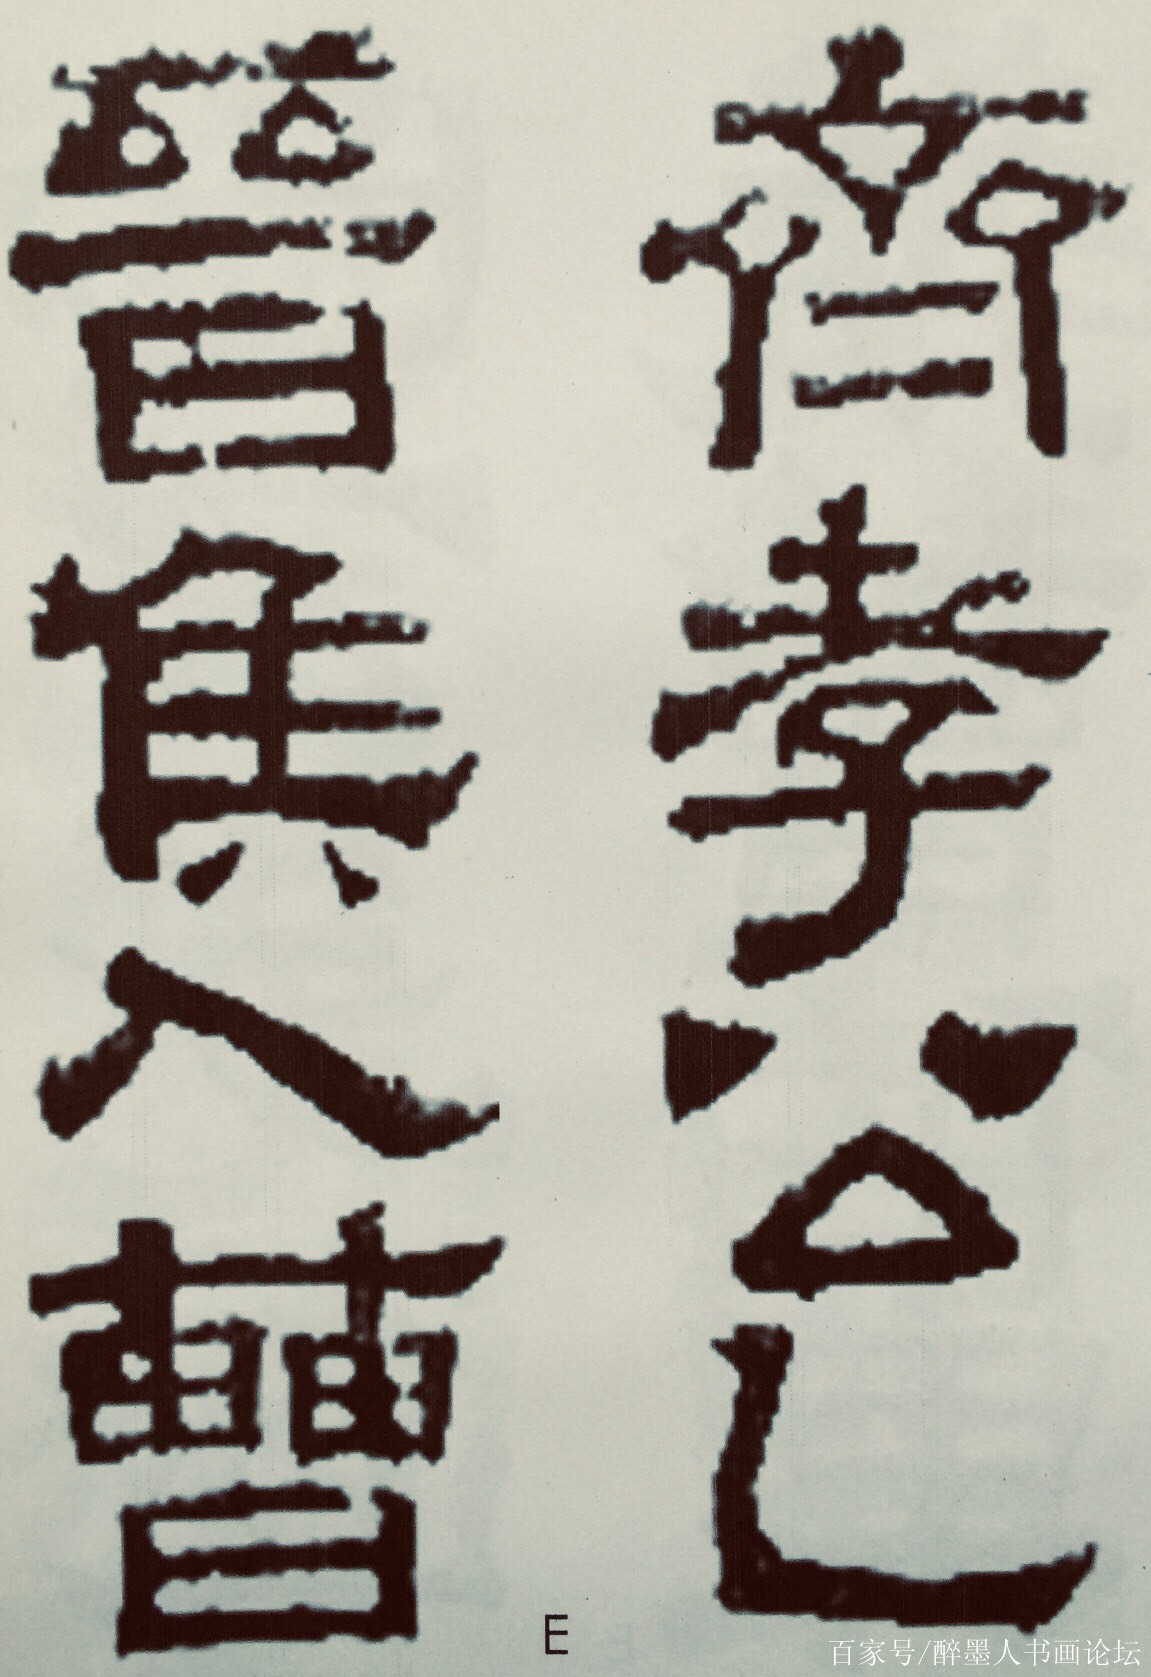 齊孝公
晉
入曹
E
百家号/醉墨人书画论坛